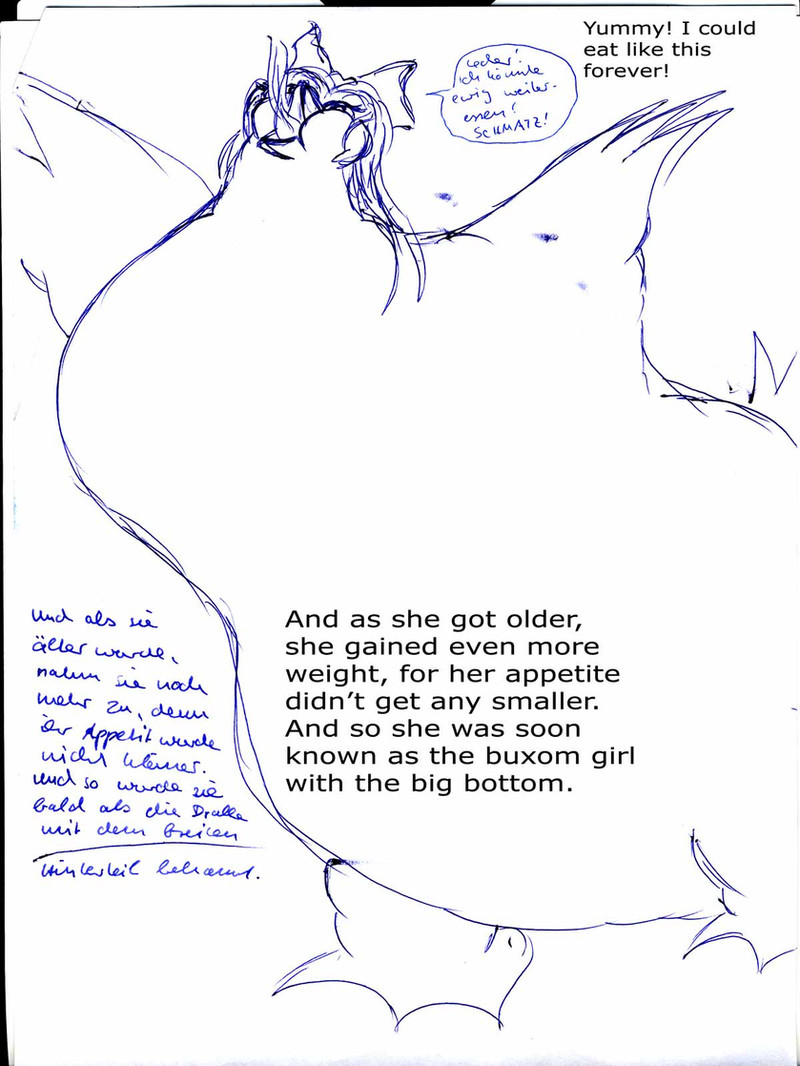 Yummy! I could
eat like this
forever!
Lecker!
Ich könnte
ewig weiter-
essen!
SCHMATZ!
und als sie
älter wurde,
nahm sie noch
mehr zu, denn
ihr Appetit wurde
nicht kleiner.
und so wurde sie
bald als die Dralle
mit dem breiten
Hinterteil bekannt.
And as she got older,
she gained even more
weight, for her appetite
didn't get any smaller.
And so she was soon
known as the buxom girl
with the big bottom.